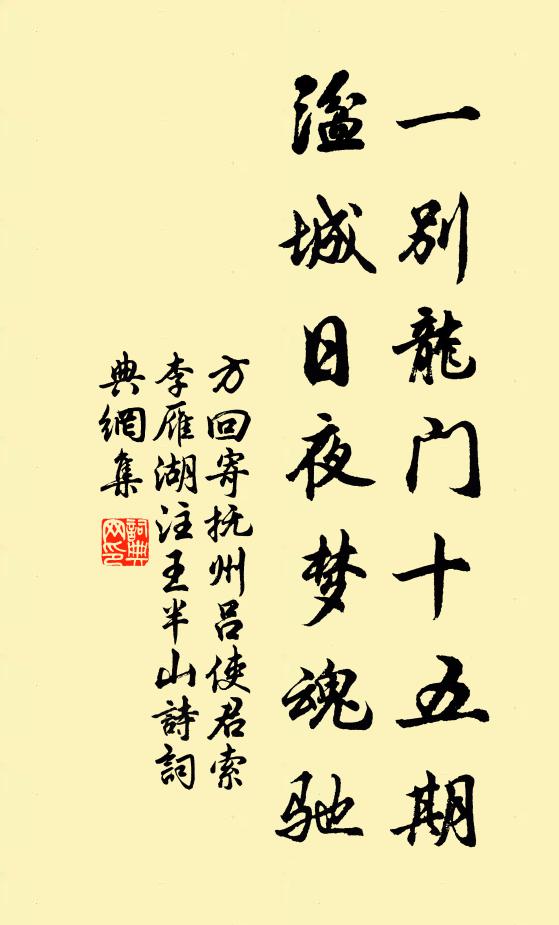 一别龍门十五期
湓城日夜梦魂驰
方回寄抚州吕使君索
李雁湖注王半山詩詞
典網集
詞典网印